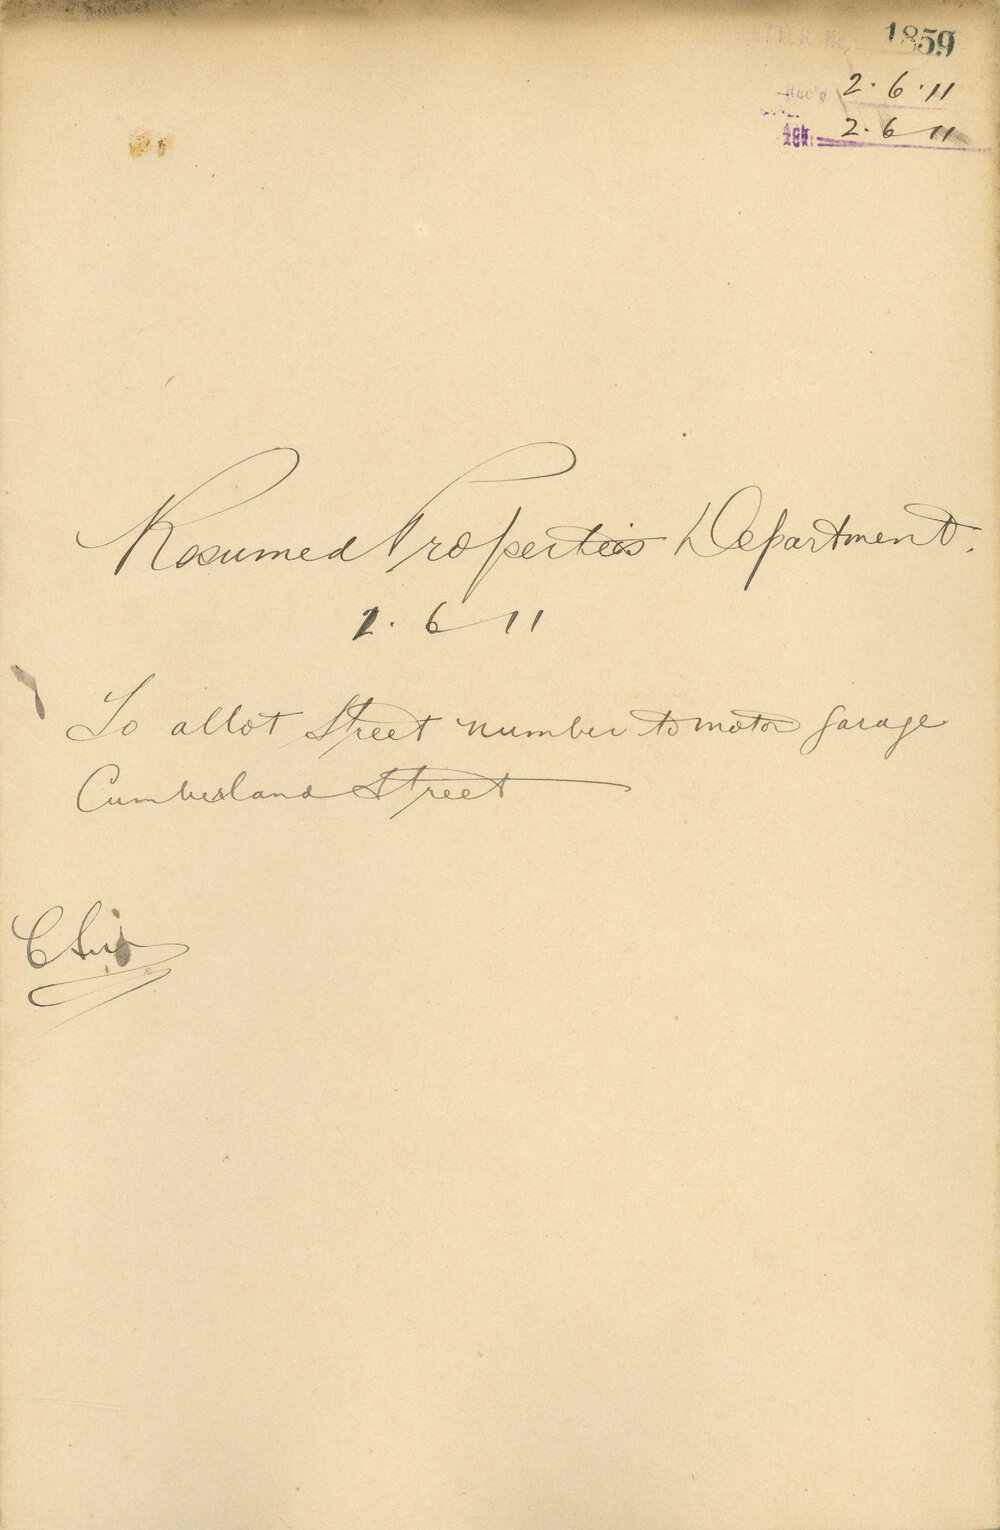 LETTER No. 1859
Rec'd 2.6.11
Ack. 2.6.11
Resumed Properties Department.
2.6.11
To allot Street number to motor garage
Cumberland Street